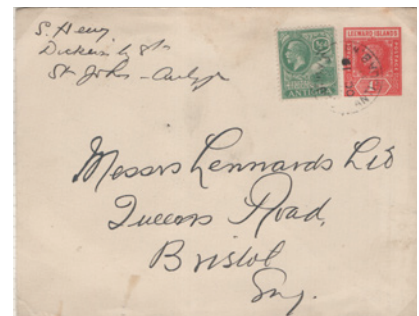 S. Henry
St Johns - Antigua
ANTIGUA
LEEWARD ISLANDS
Messrs Lennards Ltd
Queens Road,
Bristol
Eng.